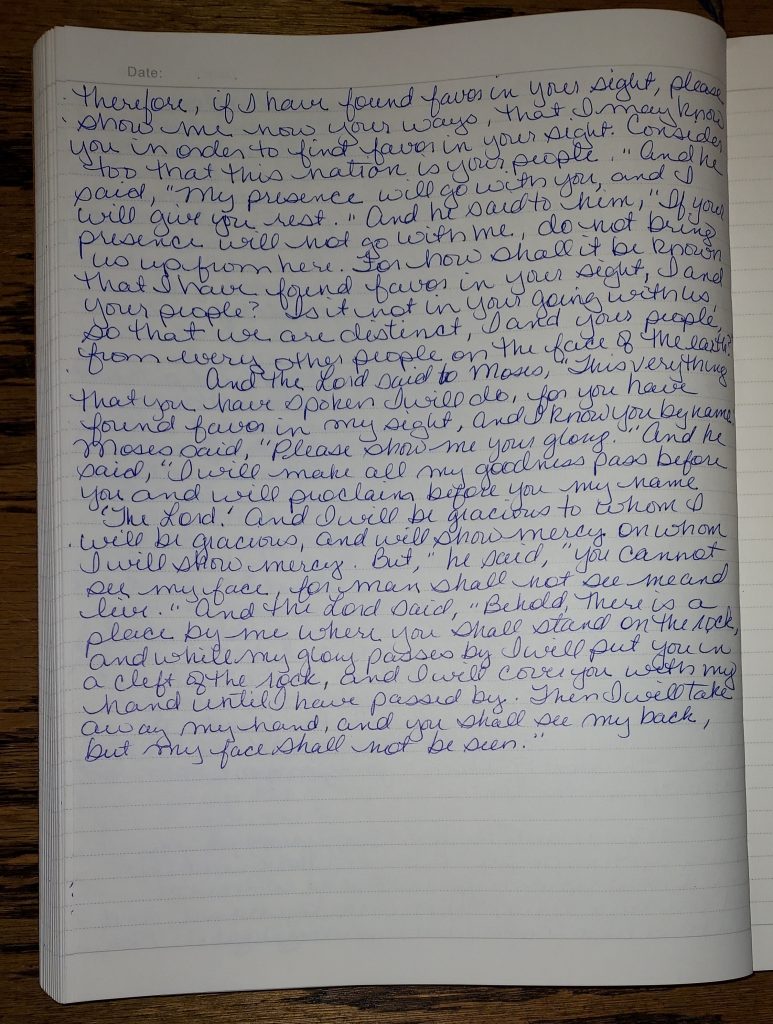 Date:
Therefore, if I have found favor in your sight, please
show me now your ways, that I may know
you in order to find favor in your sight. Consider
too that this nation is your people." And he
said, "My presence will go with you, and I
will give you rest." And he said to him, "If your
presence will not go with me, do not bring
us up from here. For how shall it be known
that I have found favor in your sight, I and
your people? Is it not in your going with us,
so that we are destinct, I and your people,
from every other people on the face of the earth?
And the Lord said to Moses, "This very thing
that you have spoken I will do, for you have
found favor in my sight, and I know you by name
Moses said, "Please show me your glory." And he
said, "I will make all my goodness pass before
you and will proclaim before you my name
'The Lord.' And I will be gracious to whom I
will be gracious, and will show mercy on whom
I will show mercy. But," he said, "you cannot
see my face, for man shall not see me and
live." And the Lord said, "Behold, there is a
place by me where you shall stand on the rock,
and while my glory passes by I will put you in
a cleft of the rock, and I will cover you with my
hand until I have passed by. Then I will take
away my hand, and you shall see my back,
but my face shall not be seen."